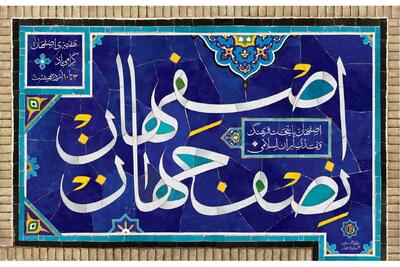 هفته‌ی اصفهان
گرامی باد
۳ تا ۱۰ اردیبهشت
اصفهان
نصف جهان
اصفهان پایتخت فرهنگ
و تمدن ایران اسلامی